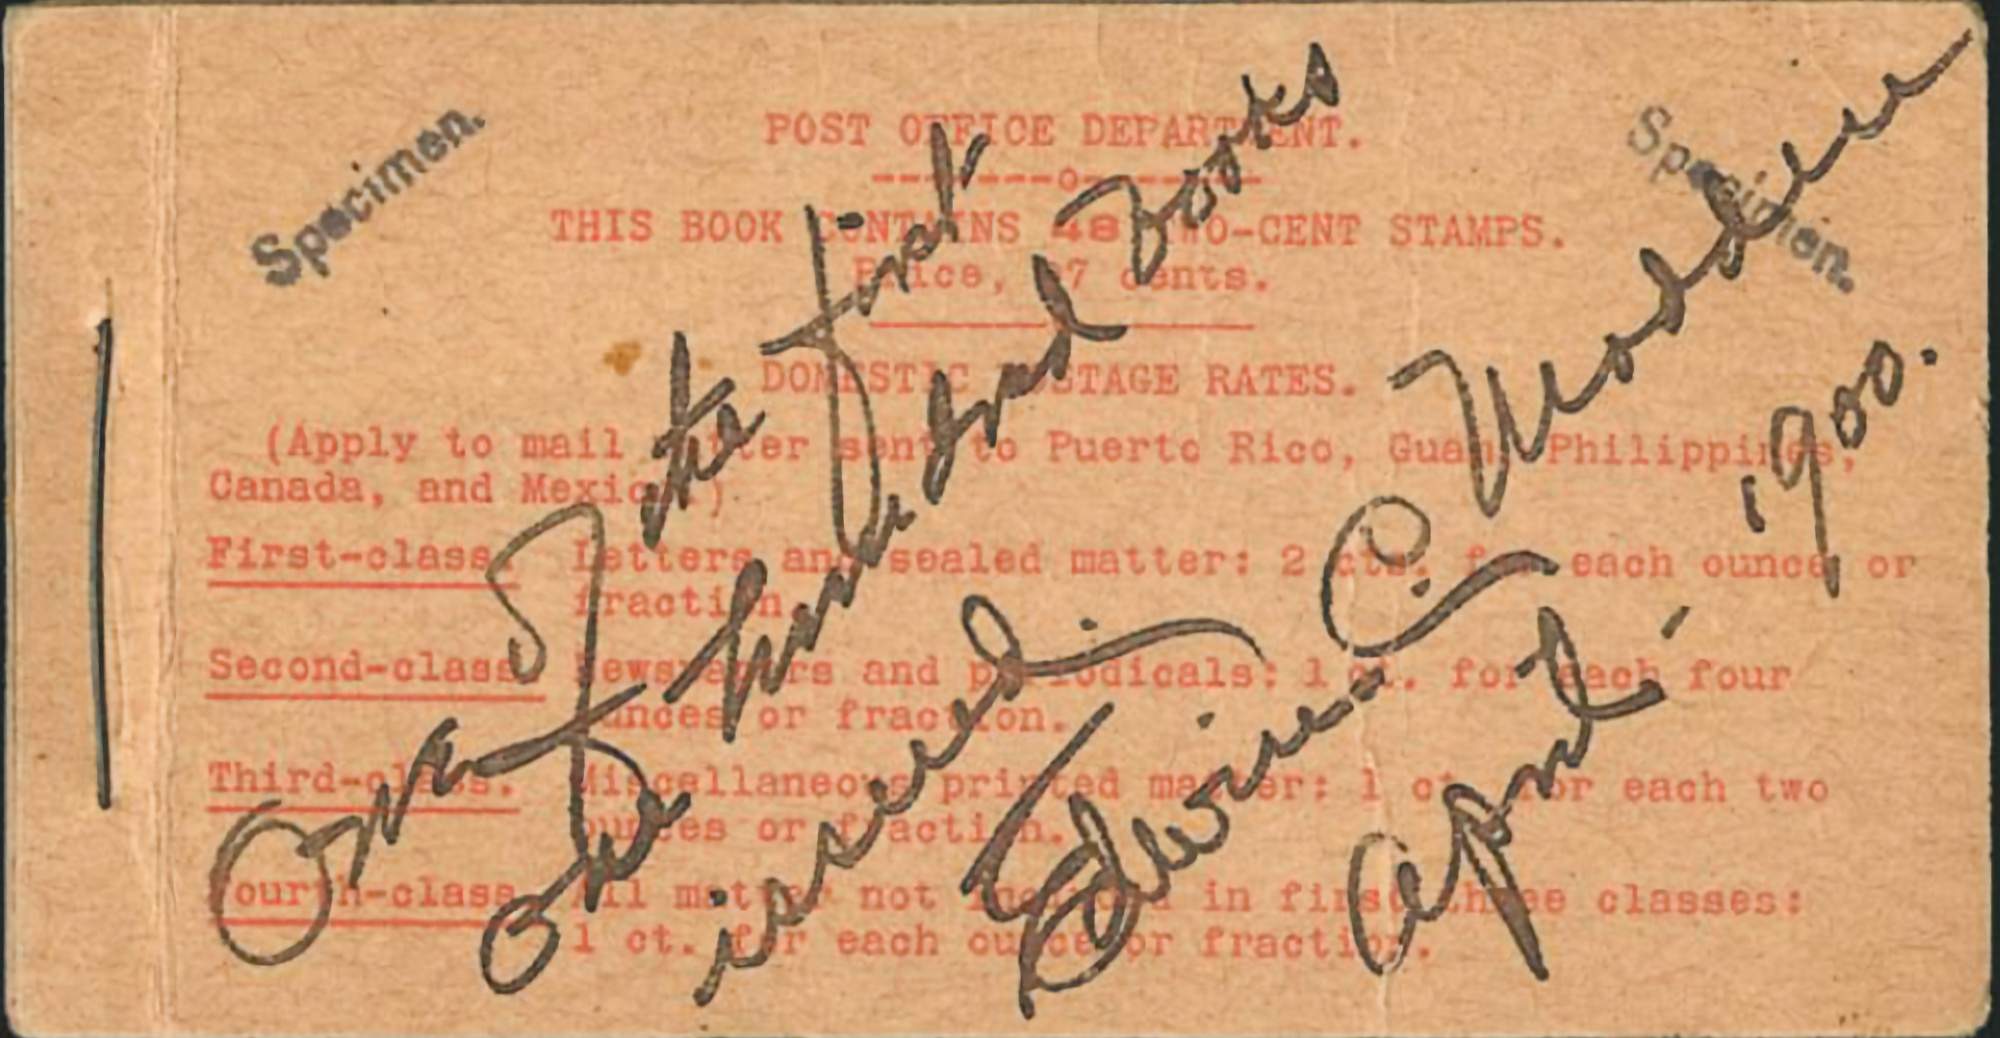 Specimen.
Specimen.
POST OFFICE DEPARTMENT.
-------o-------
THIS BOOK CONTAINS 48 TWO-CENT STAMPS.
Price, 97 cents.
DOMESTIC POSTAGE RATES.
(Apply to mail matter sent to Puerto Rico, Guam, Philippines,
Canada, and Mexico.)
First-class. Letters and sealed matter: 2 cts. for each ounce or
fraction.
Second-class. Newspapers and periodicals: 1 ct. for each four
ounces or fraction.
Third-class. Miscellaneous printed matter: 1 ct. for each two
ounces or fraction.
Fourth-class. All matter not included in first three classes:
1 ct. for each ounce or fraction.
One of the first
One hundred Books
issued.
Edwin C. Madden
April - 1900.